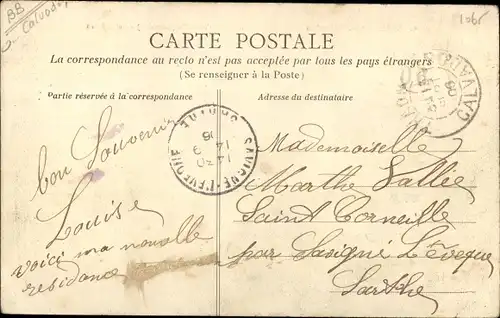 BB
Calvados
1065
CARTE POSTALE
La correspondance au recto n'est pas acceptée par tous les pays étrangers
(Se renseigner à la Poste)
Partie réservée à la correspondance
Adresse du destinataire
SAVIGNE-L'EVEQUE
SARTHE
14-30
14 9
06
CALVADOS
bon Souvenir
Louise
voici ma nouvelle
residance
Mademoiselle
Marthe Vallée
Saint Corneille
par Savigné L'évêque
Sarthe